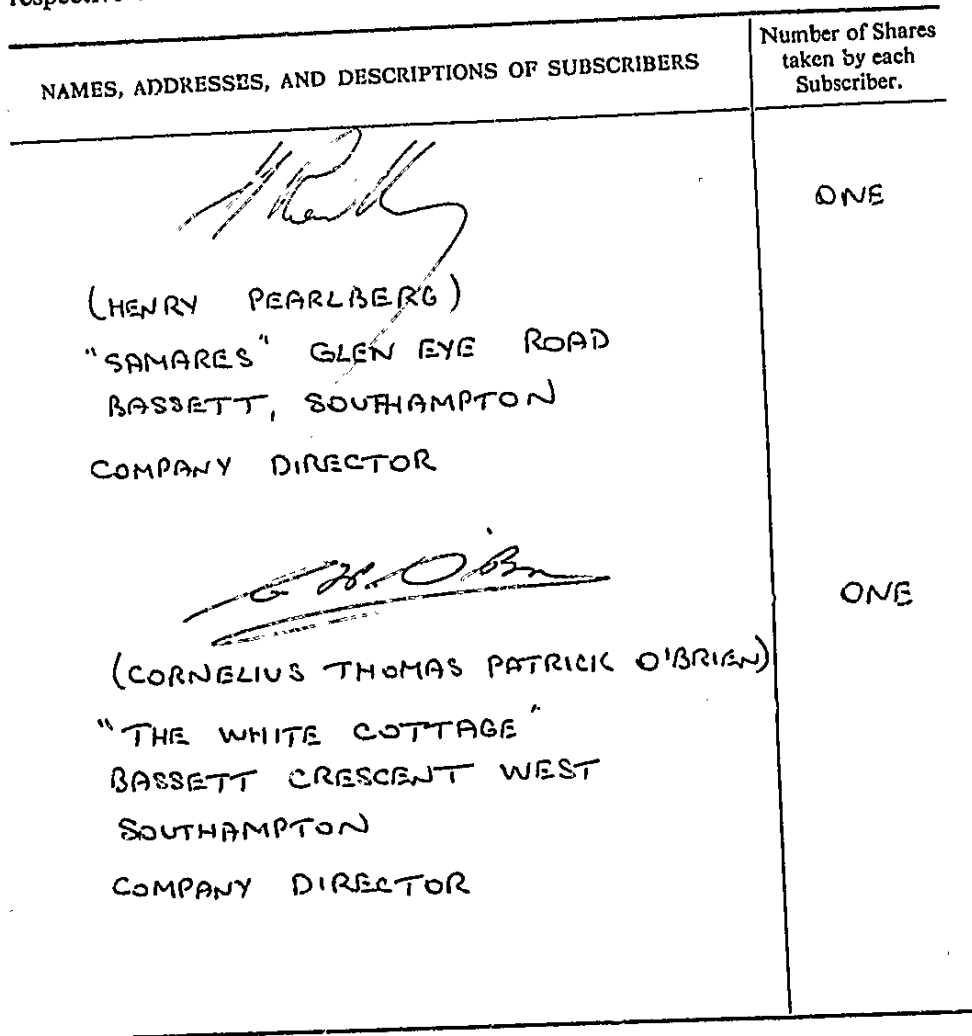 respective
NAMES, ADDRESSES, AND DESCRIPTIONS OF SUBSCRIBERS
Number of Shares
taken by each
Subscriber.
ONE
(HENRY PEARLBERG)
"SAMARES" GLEN EYE ROAD
BASSETT, SOUTHAMPTON
COMPANY DIRECTOR
O'Brien
ONE
(CORNELIUS THOMAS PATRICK O'BRIEN)
"THE WHITE COTTAGE"
BASSETT CRESCENT WEST
SOUTHAMPTON
COMPANY DIRECTOR